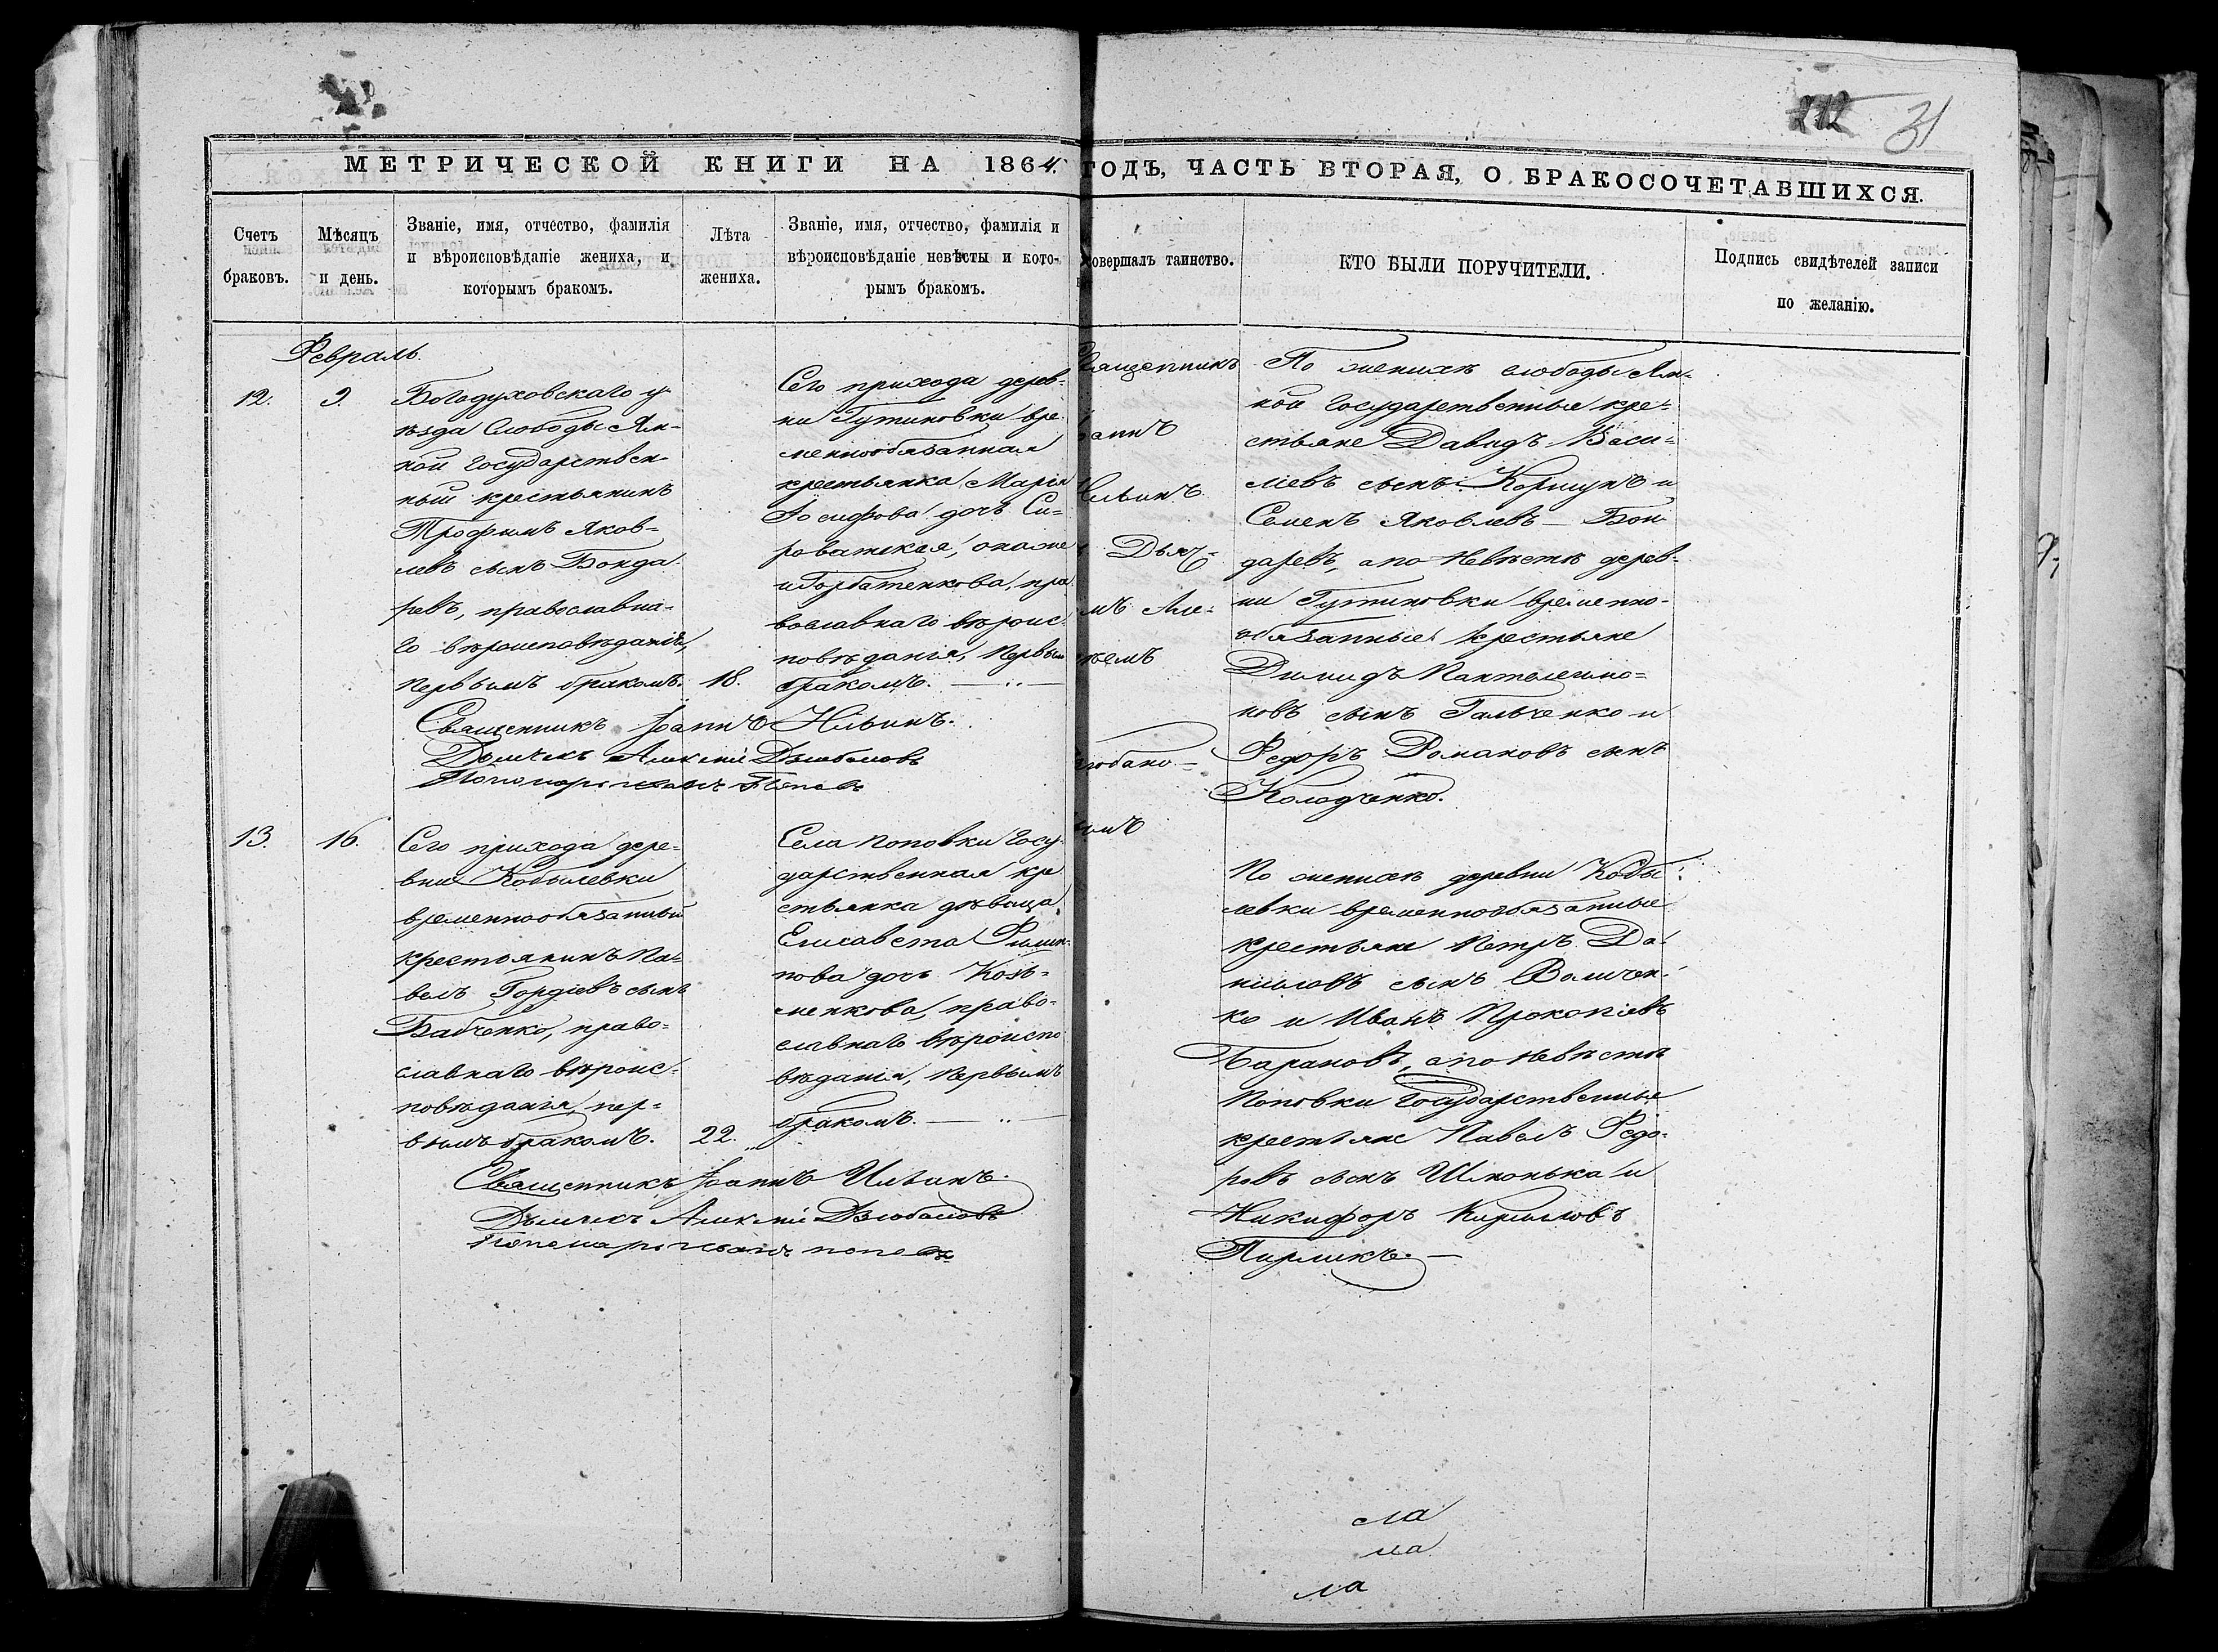 212 31
МЕТРИЧЕСКОЙ КНИГИ НА 1864. ГОДЪ, ЧАСТЬ ВТОРАЯ, О БРАКОСОЧЕТАВШИХСЯ.
Счетъ
браковъ.
Мѣсяцъ
и день.
Званіе, имя, отчество, фамилія
и вѣроисповѣданіе жениха, и
которымъ бракомъ.
Лѣта
жениха.
Званіе, имя, отчество, фамилія и
вѣроисповѣданіе невѣсты и кото-
рымъ бракомъ.
овершалъ таинство.
КТО БЫЛИ ПОРУЧИТЕЛИ.
Подпись свидѣтелей записи
по желанію.
Февраль.
12.
9.
Богодуховскаго у-
ѣзда Слободы Ям-
ной государствен-
ный крестьянинъ
Трофимъ Яков-
левъ сынъ Бонда-
ревъ, православна-
го вѣроисповѣданія,
первымъ бракомъ.
18.
Сего прихода дерев-
ни Гутиновки вре-
меннообязанная
крестьянка Марія
Іосифова дочь Си-
роватская, она же
и Горбатенкова, пра-
вославнаго вѣроис-
повѣданія, первым
бракомъ.
Священникъ Іоаннъ Ильинъ.
Дьячекъ Алексѣй Дзюбановъ
Пономарь Иванъ Поповъ
ященникъ
оаннъ
льинъ.
Дьяч-
мъ Але-
ѣемъ
зюбано-
ымъ
По женихѣ слободы Ям-
ной государственные кре-
стьяне Давидъ Васи-
ліевъ сынъ Коршунъ и
Семенъ Яковлевъ Бон-
даревъ, а по невѣстѣ дерев-
ни Гутиновки временно-
обязанные крестьяне
Димидъ Пантелеимо-
новъ сынъ Гальченко и
Федоръ Романовъ сынъ
Колодченко.
13.
16.
Сего прихода дере-
вни Кобылевки
временнообязаный
крестьянинъ Па-
велъ Гордіевъ сынъ
Бабченко, право-
славнаго вѣроис-
повѣданія, пер-
вымъ бракомъ.
22.
Села Поповки госу-
дарственная кре
стьянка дѣвица
Елисавета Филип-
пова дочь Козь-
менкова, право-
славнаго вѣроиспо
вѣданія, первымъ
бракомъ.
Священникъ Іоаннъ Ильинъ.
Дьячекъ Алексѣй Дзюбановъ
Пономарь Иванъ Поповъ
По женихѣ деревни Кобы-
левки временнообязаные
крестьяне Петръ Да-
ниловъ сынъ Величен-
ко и Иванъ Прокопіевъ
Барановъ, а по невѣстѣ
Поповки государственные
крестьяне Павелъ Федо-
ровъ сынъ Шпонька и
Никифоръ Кириловъ
Пирликъ.
ла
ла
ла